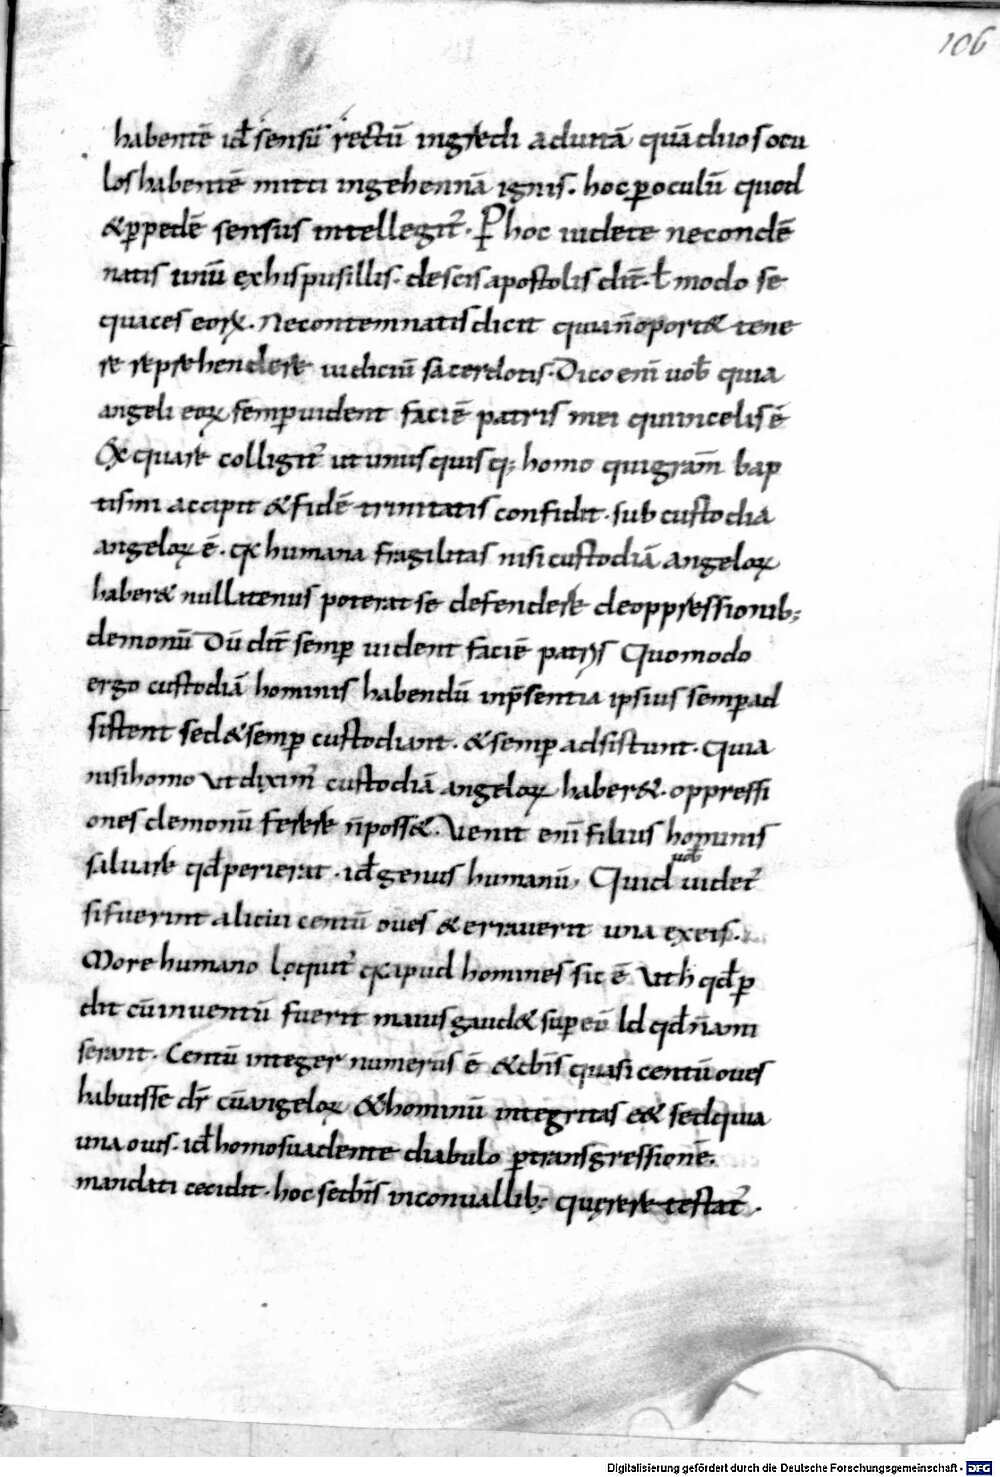 106
habentē id̄ sensū rectū ingredi aduitā quā duos ocu
los habentē mitti ingehennā ignis. hoc ꝑ oculū quod
& ꝑ pedē sensus intellegit̄. Ꝑ hoc uidete necondē
natis unū exhis pusillis. de scīs apostolis dīt. ł modo se
quaces eoꝝ. Necontemnatis dicit quia n̄ oport& teme
re reprehendere iudiciū sacerdotis. Dico enī uob̄ quia
angeli eoꝝ semꝑ uident faciē patris mei qui incelis ē
Ex quare colligit̄ ut unus quisq; homo qui gram̄ bap
tismi accipit & fidē trinitatis confidit. sub custodia
angeloꝝ ē. qꝛ humana fragilitas nisi custodiā angeloꝝ
haber& nullatenus poterat se defendere de oppressionib;
demonū Dū dīt semꝑ uident faciē patris Quomodo
ergo custodiā hominis habendū inp̄sentia ipsius semꝑ ad
sistent sed & semꝑ custodiunt. & semꝑ adsistunt. Quia
nisi homo ut diximꝰ custodiā angeloꝝ haber&. oppressi
ones demonū ferre n̄ poss&. Venit enī filius hominis
saluare qđ perierat. id̄ genus humanū, Quid uob̄ uidet̄
si fuerint alicui centū oues & errauerit una exeis.
More humano loquit̄ qꝛ apud homines sic ē ut h̄ qđ ꝑ
dit cū inuentū fuerit maius gaud& suꝑ eū Id qđ n̄ ami
serant. Centū integer numerus ē & dn̄s quasi centū oues
habuisse dr̄ cū angeloꝝ & hominū integritas ee& sed quia
una ouis. id̄ homo suadente diabulo ꝑ transgressionē.
mandati cecidit. hoc se dn̄s inconuallib; quęrere testat̄.
Digitalisierung gefördert durch die Deutsche Forschungsgemeinschaft - DFG